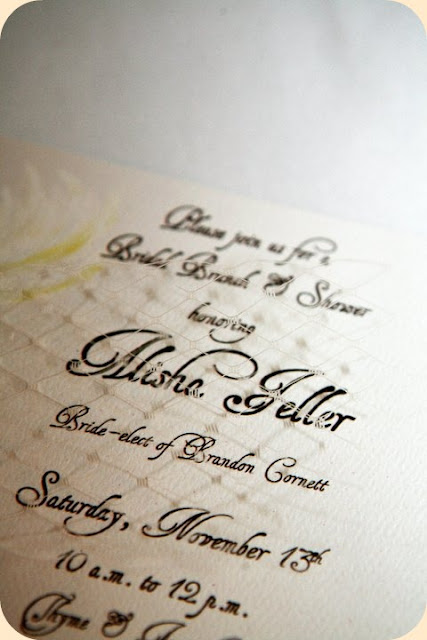 Please join us for a
Bridal Brunch & Shower
honoring
Alisha
Bride-elect of Brandon Cornett
Saturday, November 13th
10 a.m. to 12 p.m.
Thyme &